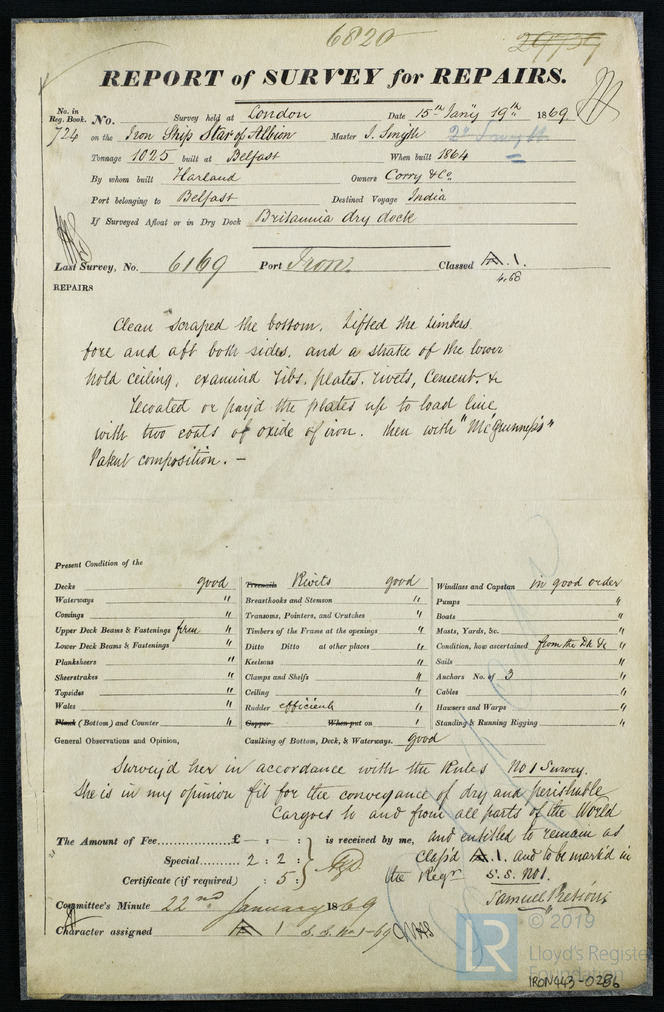 6820
29739
REPORT of SURVEY for REPAIRS.
No. in Reg. Book. No. Survey held at London Date 15th Jan'y 19th 1869
724 on the Iron Ship Star of Albion Master J. Smyth
Tonnage 1025 built at Belfast When built 1864
By whom built Harland Owners Corry & Co.
Port belonging to Belfast Destined Voyage India
If Surveyed Afloat or in Dry Dock Britannia dry dock
Last Survey, No. 6169 Port Iron. Classed A.1.
4.68
REPAIRS
Clean scraped the bottom. Lifted the limbers
fore and aft both sides. and a strake of the lower
hold ceiling, examind ribs. plates. rivets, Cement. &
recoated or pay'd the plates up to load line
with two coats of oxide of iron. then with "McGuinness's"
Patent composition. —
Present Condition of the
Decks good
Waterways "
Comings "
Upper Deck Beams & Fastenings firm "
Lower Deck Beams & Fastenings "
Planksheers "
Sheerstrakes "
Topsides "
Wales "
Plank (Bottom) and Counter "
General Observations and Opinion,
Treenails Rivits good
Breasthooks and Stemson "
Transoms, Pointers, and Crutches "
Timbers of the Frame at the openings "
Ditto Ditto at other places "
Keelsons "
Clamps and Shelfs "
Ceiling "
Rudder efficient "
Copper When put on "
Caulking of Bottom, Deck, & Waterways. good
Windlass and Capstan in good order
Pumps "
Boats "
Masts, Yards, &c. "
Condition, how ascertained from the Dk &c
Sails "
Anchors No. of 3 "
Cables "
Hawsers and Warps "
Standing & Running Rigging "
Survey'd her in accordance with the Rules No 1 Survey.
She is in my opinion fit for the conveyance of dry and perishable
Cargoes to and from all parts of the World
and entitled to remain as
Class'd A.1. and to be mark'd in
the Regr S.S. No 1.
Samuel Pretious
The Amount of Fee £ - : : is received by me,
Special 2 : 2 :
Certificate (if required) : 5 :
Committee's Minute 22nd January 1869
Character assigned A 1 S.S. No 1-69
LR
© 2019
Lloyd's Register
Foundation
IRON443-0286